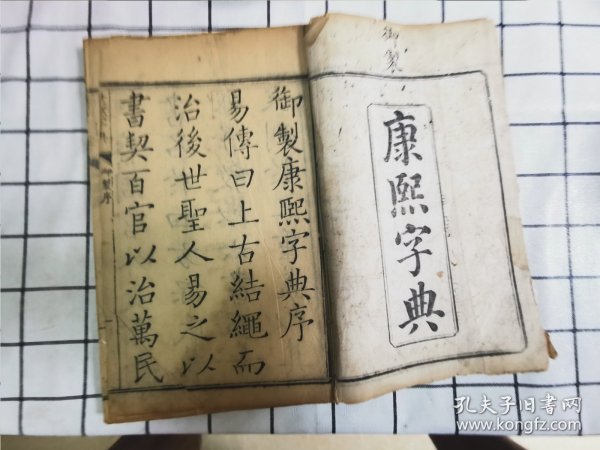 御製
康熙字典
御製康熙字典序
易傳曰上古結繩而
治後世聖人易之以
書契百官以治萬民
孔夫子旧书网
www.kongfz.com